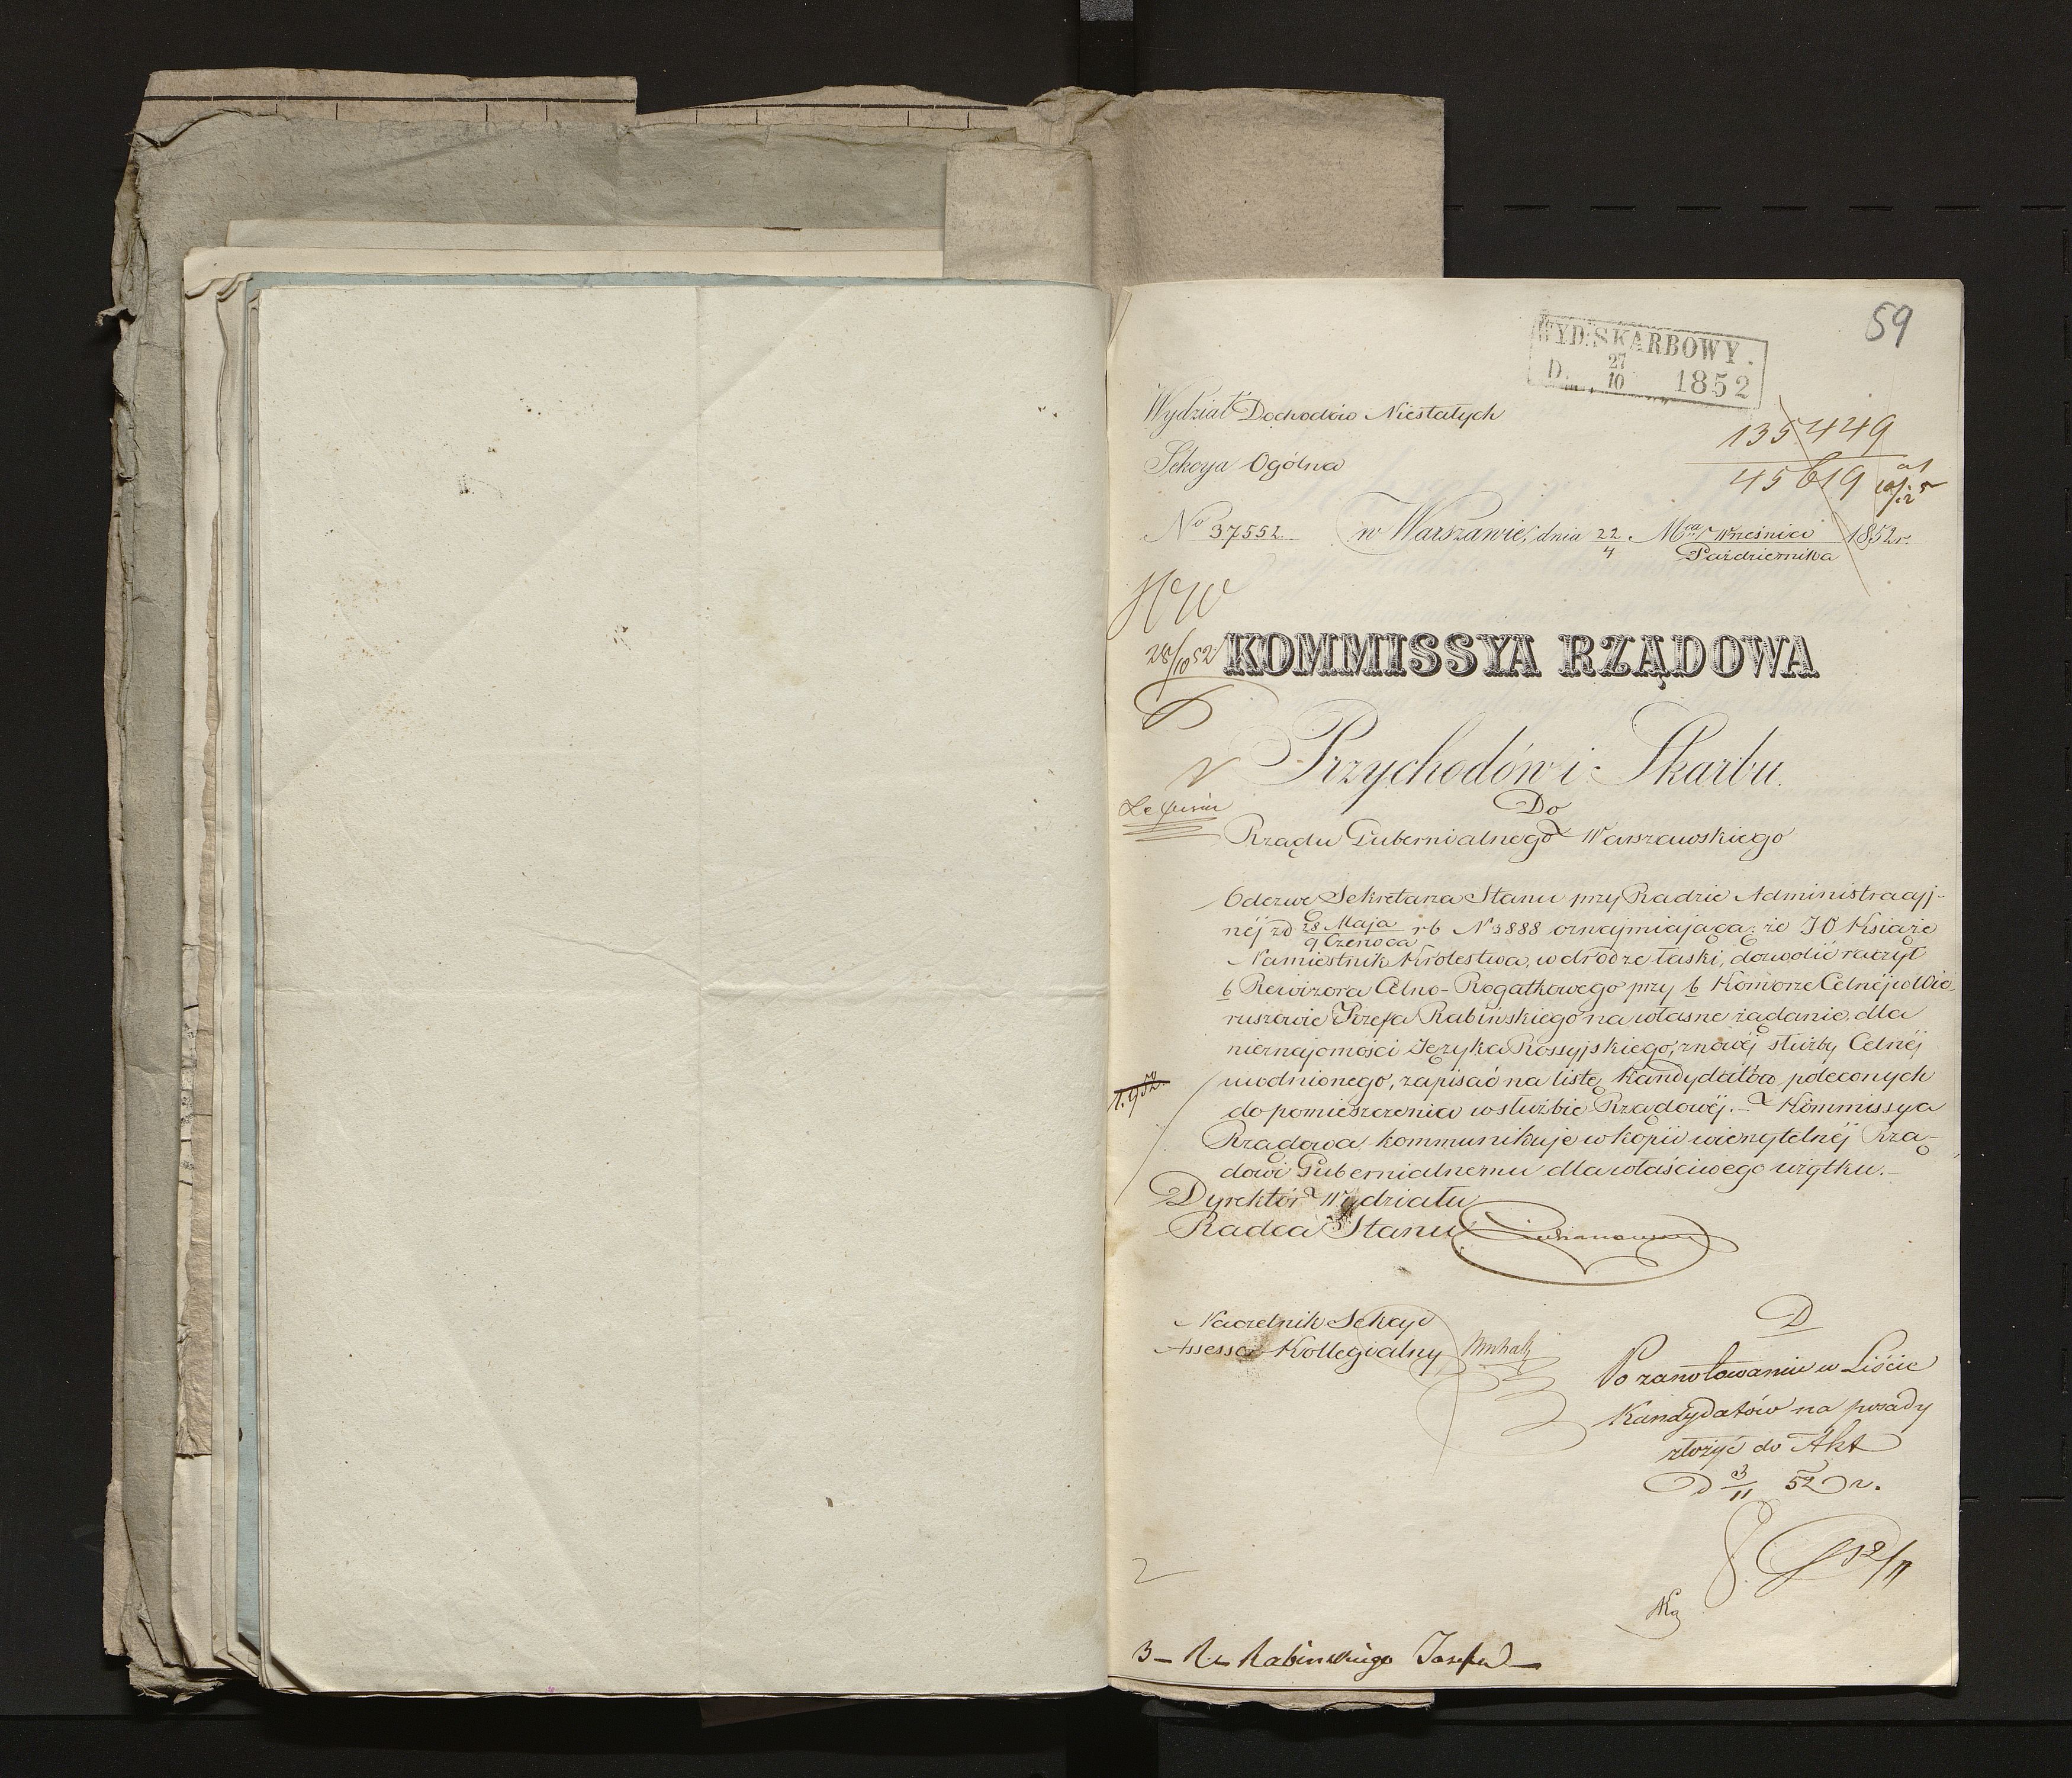 59
WYD: SKARBOWY.
D. 27/10 1852
Wydział Dochodów Niestałych
Sekcya Ogólna
135449
45619
No 37552 w Warszawie, dnia 22/4 Mca Września/Października 1852 r.
28/10 52
KOMMISSYA RZĄDOWA
Przychodów i Skarbu.
Do
Rządu Gubernialnego Warszawskiego
Odezwę Sekretarza Stanu przy Radzie Administracyj-
néj z d 28 Maja/9 Czerwca r b N 3888 oznajmiającą: że J O Książe
Namiestnik Królestwa, w drodze łaski, dozwolić raczył
b Rewizora Celno-Rogatkowego przy b Komorze Celnéj w Wie-
ruszowie Józefa Rabińskiego na własne żądanie, dla
nieznajomości Języka Rossyjskiego, z nowéj służby Celnéj
uwolnionego, zapisać na listę Kandydatów poleconych
do pomieszczenia w służbie Rządowéj. – Kommissya
Rządowa kommunikuje w kopii wierzytelnéj Rzą-
dowi Gubernialnemu dla właściwego użytku.–
Dyrektór Wydziału
Radca Stanu
Naczelnik Sekcyi
Assessor Kollegialny
D
Po zanotowaniu w Liście
Kandydatów na posady
złożyć do Akt
D 3/11 52 r.
12/11
2
3 – Rabińskiego Józefa –